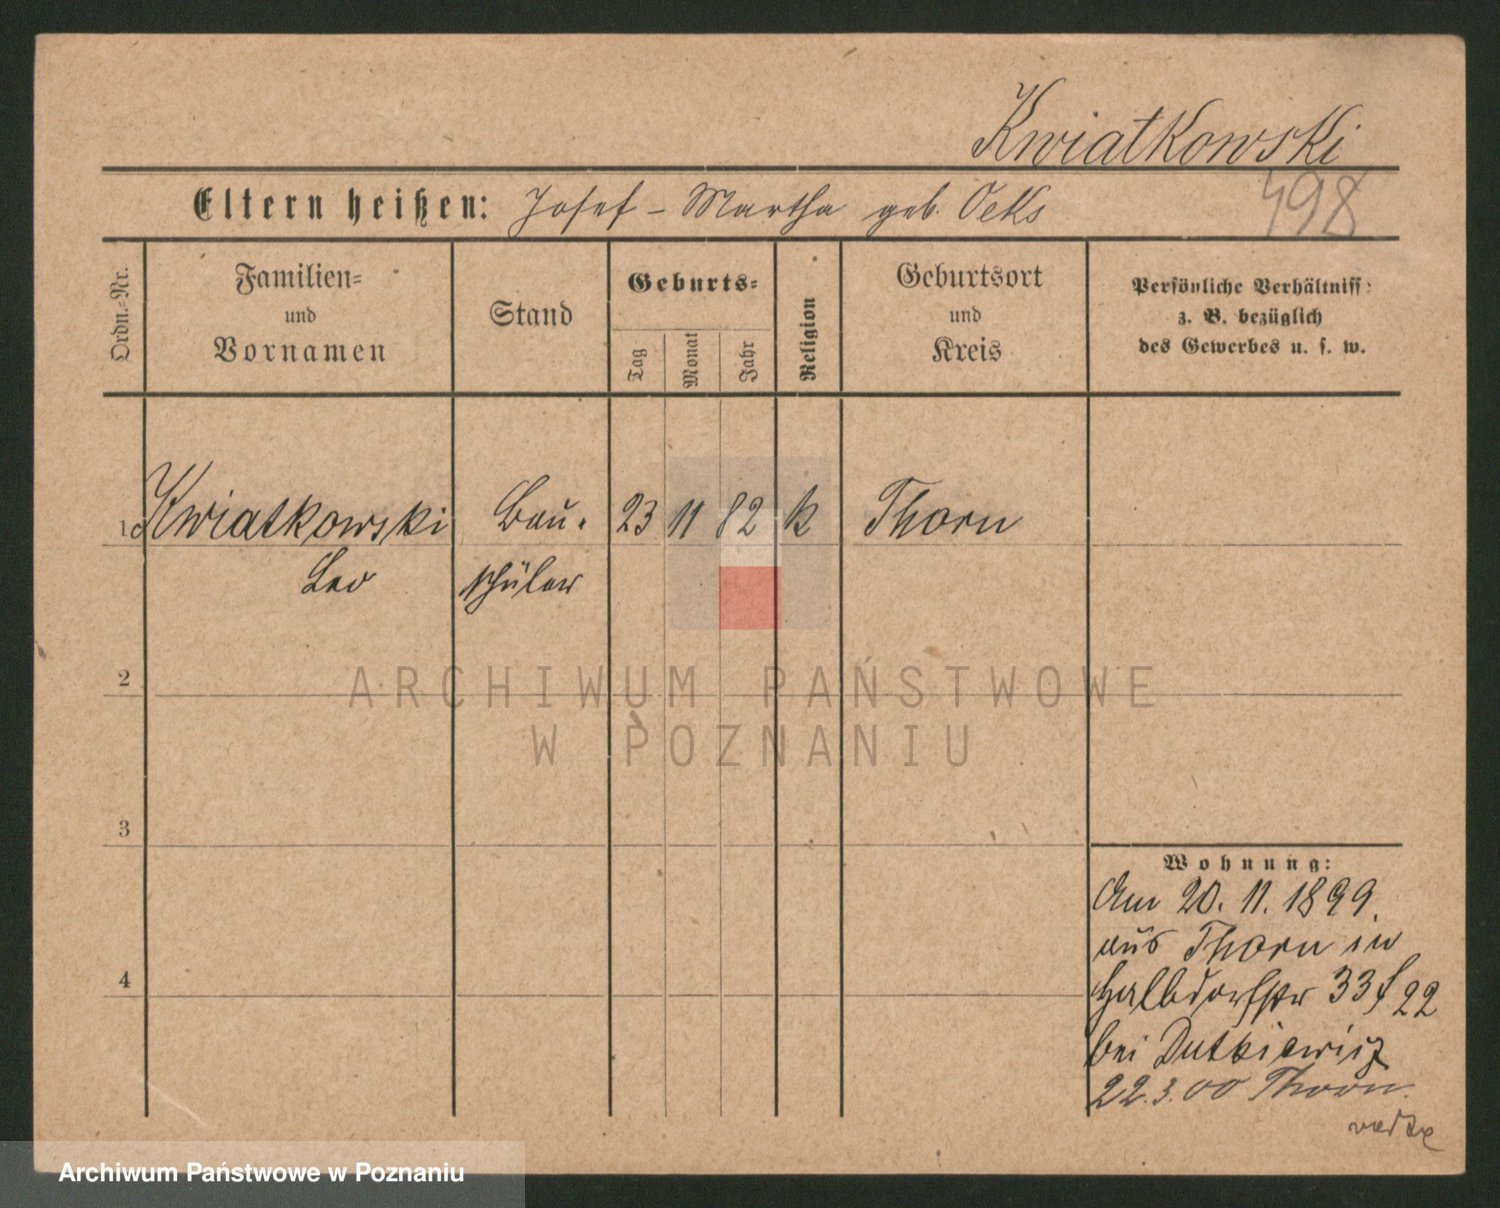 Kwiatkowski
Eltern heißen: Josef - Martha geb. Oeks
498
Ordn.-Nr.
Familien-
und
Vornamen
Stand
Geburts-
Tag
Monat
Jahr
Religion
Geburtsort
und
Kreis
Persönliche Verhältniss
z. B. bezüglich
des Gewerbes u. s. w.
1 Kwiatkowski Bau- 23 11 82 k Thorn
Leo schüler
2
3
4
Wohnung:
Am 20. 11. 1899.
aus Thorn in
Halbdorfstr 33 f 22
bei Dutkiewicz
22.3.00 Thorn.
ARCHIWUM PAŃSTWOWE
W POZNANIU
Archiwum Państwowe w Poznaniu